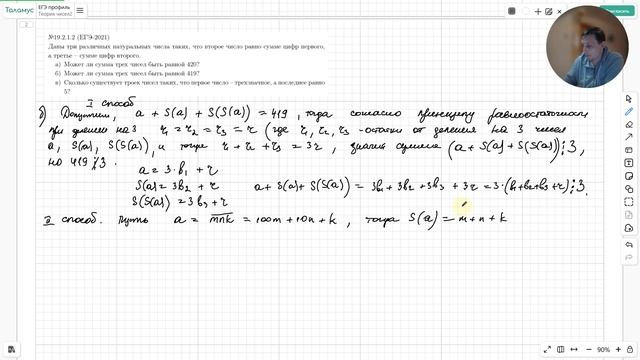 Таламус
ЕГЭ профиль
Теория чисел2
2
№19.2.1.2 (ЕГЭ-2021)
Даны три различных натуральных числа таких, что второе число равно сумме цифр первого,
а третье – сумме цифр второго.
а) Может ли сумма трех чисел быть равной 420?
б) Может ли сумма трех чисел быть равной 419?
в) Сколько существует троек чисел таких, что первое число – трехзначное, а последнее равно
5?
I способ
б) Допустим, a + S(a) + S(S(a)) = 419, тогда согласно принципу равноостаточности
при делении на 3 r₁ = r₂ = r₃ = r (где r₁, r₂, r₃ - остатки от деления на 3 чисел
a, S(a), S(S(a)), и тогда r + r + r = 3r, значит сумма (a + S(a) + S(S(a))) ⋮ 3,
но 419 ⋮̸ 3.
a = 3·b₁ + r
S(a) = 3b₂ + r a + S(a) + S(S(a)) = 3b₁ + 3b₂ + 3b₃ + 3r = 3·(b₁+b₂+b₃+r) ⋮ 3.
S(S(a)) = 3b₃ + r
II способ. Пусть a = mnk = 100m + 10n + k, тогда S(a) = m + n + k
90%